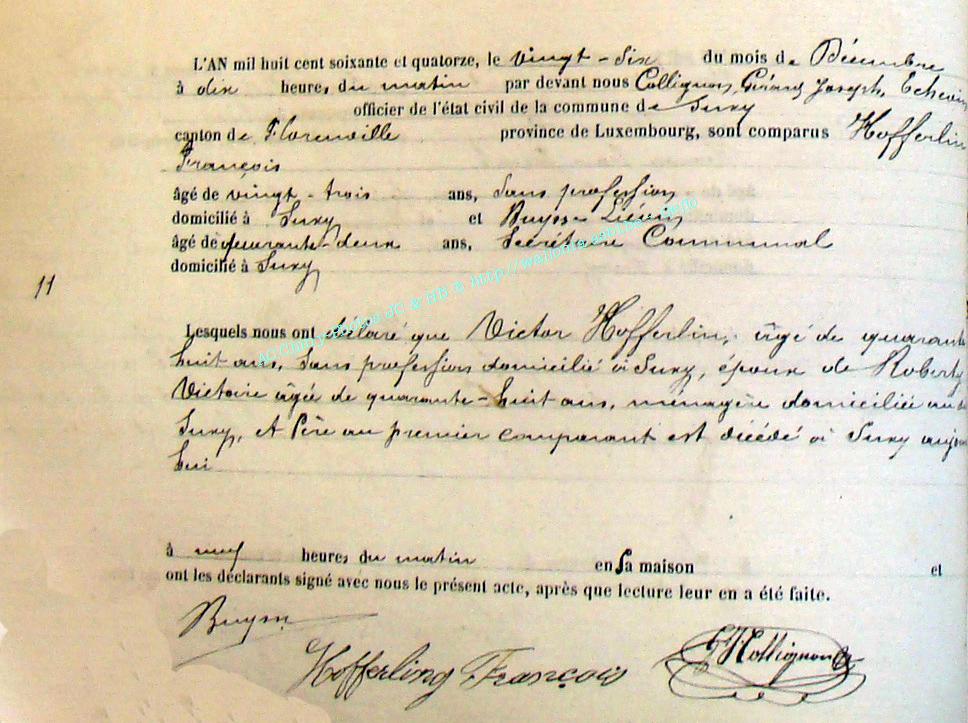 L'AN mil huit cent soixante et quatorze, le vingt-six du mois de Décembre
à dix heures du matin par devant nous Collignon, Gérard Joseph, Echevin
officier de l'état civil de la commune de Suxy
canton de Florenville province de Luxembourg, sont comparus Hofferlin
François
âgé de vingt-trois ans, sans profession
domicilié à Suxy et Buysse
âgé de quarante-deux ans, Secrétaire Communal
domicilié à Suxy
11
Lesquels nous ont déclaré que Victor Hofferlin, âgé de quarante
huit ans, sans profession domicilié à Suxy, époux de Robert
Victoire âgée de quarante-huit ans, ménagère domiciliée au
Suxy, et Père au premier comparant est décédé à Suxy aujour
hui
à neuf heures du matin en sa maison et
ont les déclarants signé avec nous le présent acte, après que lecture leur en a été faite.
Buysse
Hofferling François
GJCollignon